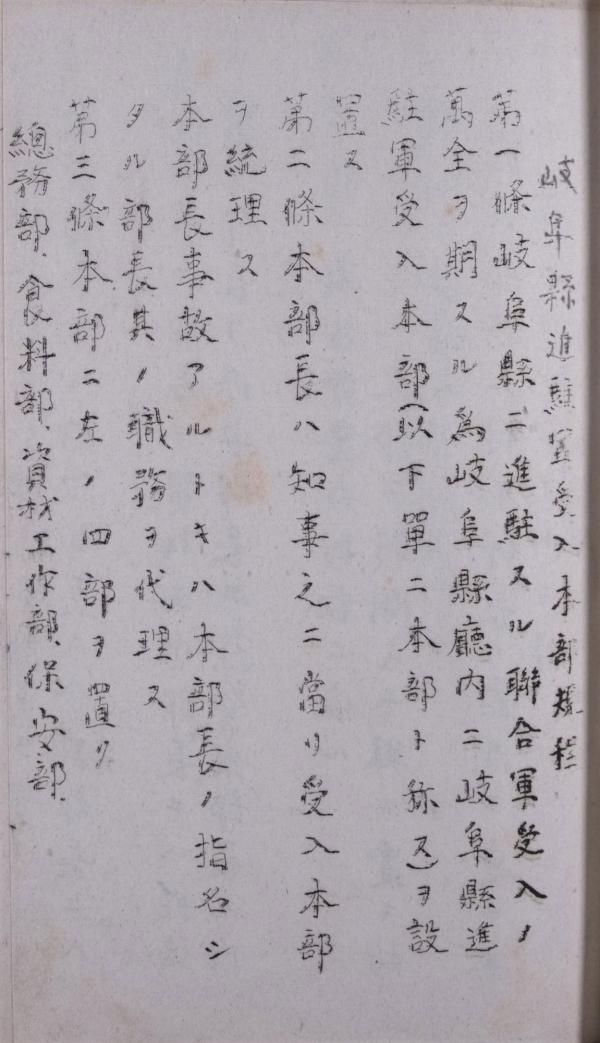 岐阜縣進駐軍受入本部規程
第一條岐阜縣ニ進駐スル聯合軍受入ノ
萬全ヲ期スル爲岐阜縣廳内ニ岐阜縣進
駐軍受入本部(以下單ニ本部ト称ス)ヲ設
置ス
第二條本部長ハ知事之ニ當リ受入本部
ヲ統理ス
本部長事故アルトキハ本部長ノ指名シ
タル部長其ノ職務ヲ代理ス
第三條本部ニ左ノ四部ヲ置ク
總務部、食料部、資材工作部、保安部、